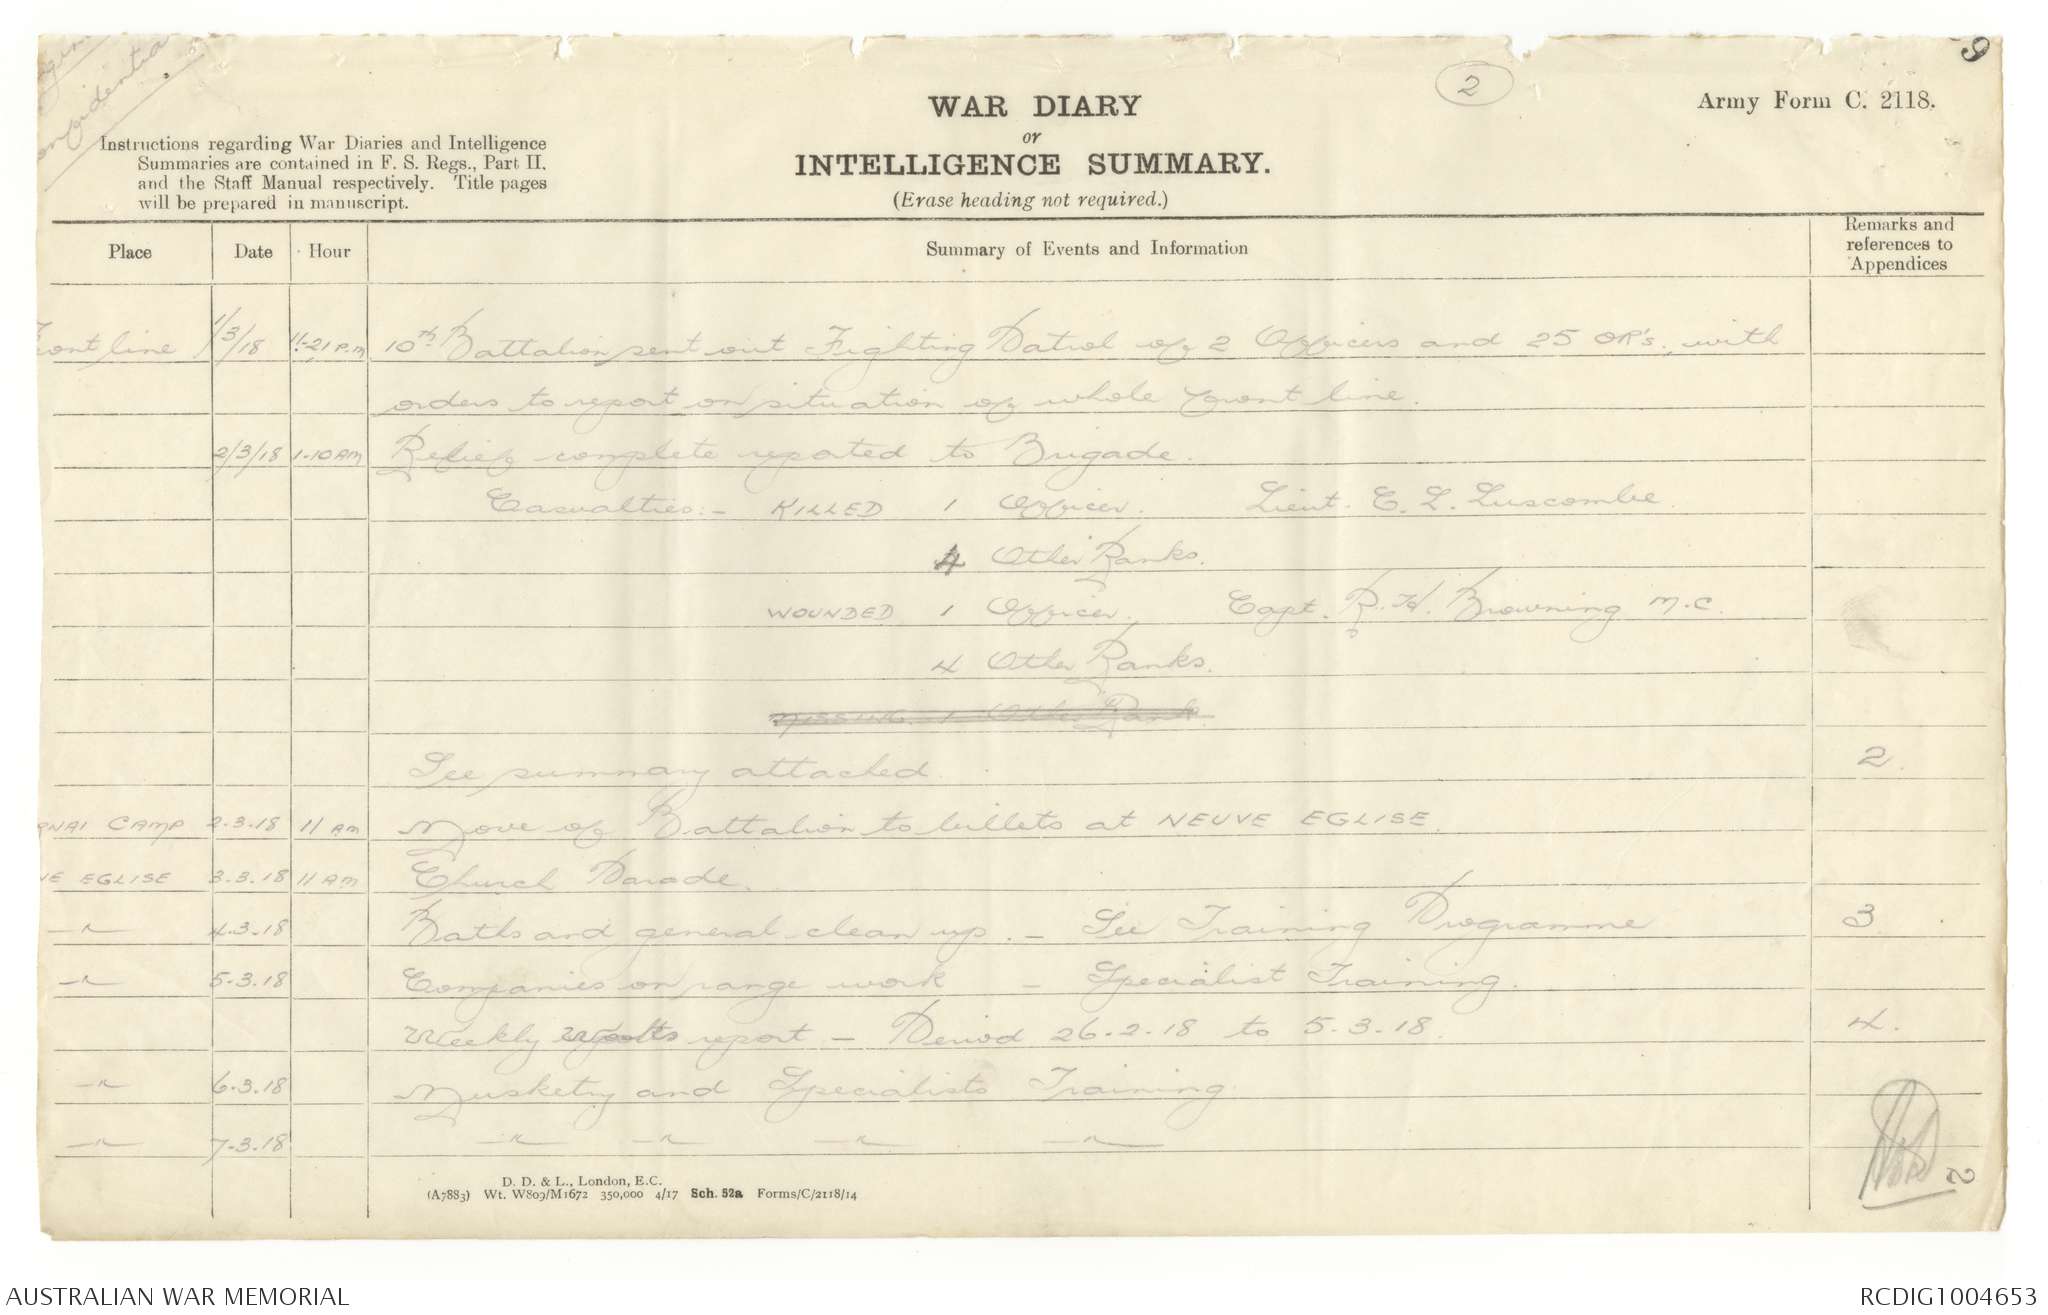 Confidential
9
2
WAR DIARY
or
INTELLIGENCE SUMMARY.
(Erase heading not required.)
Army Form C. 2118.
Instructions regarding War Diaries and Intelligence
Summaries are contained in F. S. Regs., Part II,
and the Staff Manual respectively. Title pages
will be prepared in manuscript.
Place Date Hour Summary of Events and Information Remarks and references to Appendices
Front line 1/3/18 11-21 P.M 10th Battalion sent out Fighting Patrol of 2 Officers and 25 OR's. with
orders to report on situation of whole front line.
2/3/18 1-10 AM Relief complete reported to Brigade.
Casualties:- KILLED 1 Officer. Lieut. C. L. Luscombe.
4 Other Ranks.
WOUNDED 1 Officer. Capt. R. H. Browning M.C.
4 Other Ranks.
MISSING. 1 Other Rank.
See summary attached. 2.
RNAI CAMP 2.3.18 11 AM Move of Battalion to billets at NEUVE EGLISE.
VE EGLISE 3.3.18 11 AM Church Parade.
-"- 4.3.18 Baths and general clean up. - See Training Programme 3.
-"- 5.3.18 Companies on range work - Specialist Training.
Weekly report - Period 26.2.18 to 5.3.18. 4.
-"- 6.3.18 Musketry and Specialists Training.
-"- 7.3.18 -"- -"- -"- -"-
2
D. D. & L., London, E.C.
(A7883) Wt. W809/M1672 350,000 4/17 Sch. 52a Forms/C/2118/14
AUSTRALIAN WAR MEMORIAL
RCDIG1004653